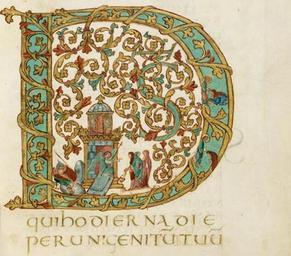 D
QUIHODIERNADIE
PERUNIGENITŪTUŪ